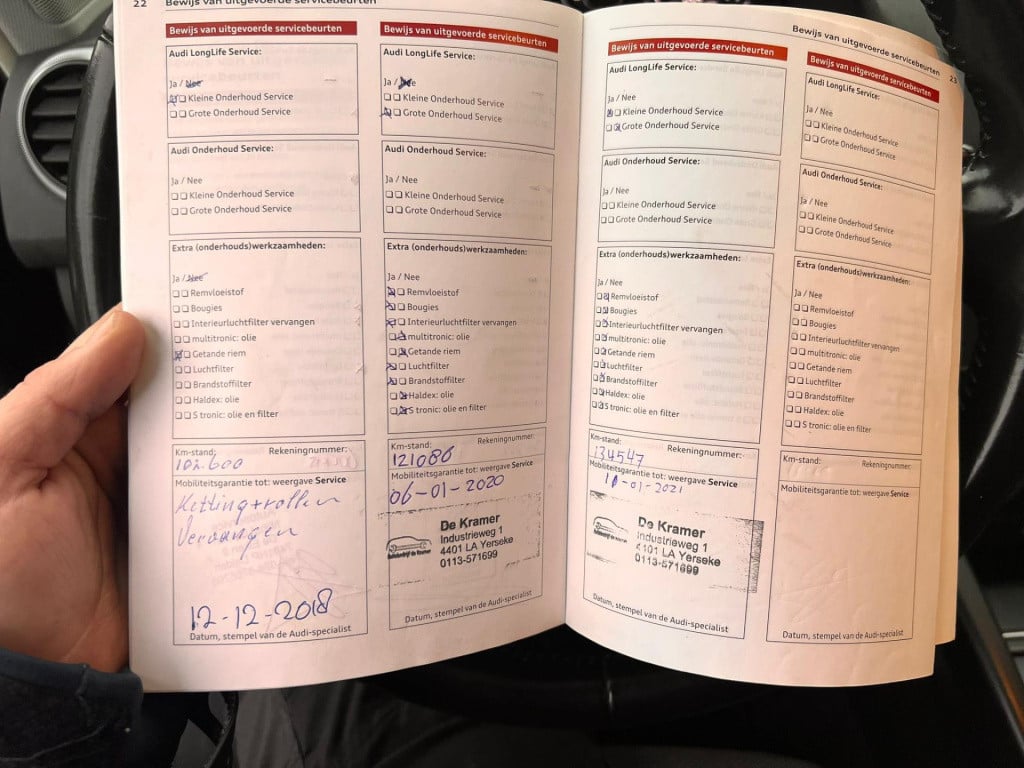 22 Bewijs van uitgevoerde servicebeurten
Bewijs van uitgevoerde servicebeurten
Audi LongLife Service:
Ja / Nee
Kleine Onderhoud Service
Grote Onderhoud Service
Audi Onderhoud Service:
Ja / Nee
Kleine Onderhoud Service
Grote Onderhoud Service
Extra (onderhouds)werkzaamheden:
Ja / Nee
Remvloeistof
Bougies
Interieurluchtfilter vervangen
multitronic: olie
Getande riem
Luchtfilter
Brandstoffilter
Haldex: olie
S tronic: olie en filter
Km-stand: Rekeningnummer:
102.600
Mobiliteitsgarantie tot: weergave Service
Ketting+rollen
Vervangen
12-12-2018
Datum, stempel van de Audi-specialist
Bewijs van uitgevoerde servicebeurten
Audi LongLife Service:
Ja / Nee
Kleine Onderhoud Service
Grote Onderhoud Service
Audi Onderhoud Service:
Ja / Nee
Kleine Onderhoud Service
Grote Onderhoud Service
Extra (onderhouds)werkzaamheden:
Ja / Nee
Remvloeistof
Bougies
Interieurluchtfilter vervangen
multitronic: olie
Getande riem
Luchtfilter
Brandstoffilter
Haldex: olie
S tronic: olie en filter
Km-stand: Rekeningnummer:
121086
Mobiliteitsgarantie tot: weergave Service
06-01-2020
De Kramer
Industrieweg 1
4401 LA Yerseke
0113-571699
Datum, stempel van de Audi-specialist
Bewijs van uitgevoerde servicebeurten 23
Bewijs van uitgevoerde servicebeurten
Audi LongLife Service:
Ja / Nee
Kleine Onderhoud Service
Grote Onderhoud Service
Audi Onderhoud Service:
Ja / Nee
Kleine Onderhoud Service
Grote Onderhoud Service
Extra (onderhouds)werkzaamheden:
Ja / Nee
Remvloeistof
Bougies
Interieurluchtfilter vervangen
multitronic: olie
Getande riem
Luchtfilter
Brandstoffilter
Haldex: olie
S tronic: olie en filter
Km-stand: Rekeningnummer:
134547
Mobiliteitsgarantie tot: weergave Service
-01-2021
De Kramer
Industrieweg 1
4401 LA Yerseke
0113-571699
Datum, stempel van de Audi-specialist
Bewijs van uitgevoerde servicebeurten
Audi LongLife Service:
Ja / Nee
Kleine Onderhoud Service
Grote Onderhoud Service
Audi Onderhoud Service:
Ja / Nee
Kleine Onderhoud Service
Grote Onderhoud Service
Extra (onderhouds)werkzaamheden:
Ja / Nee
Remvloeistof
Bougies
Interieurluchtfilter vervangen
multitronic: olie
Getande riem
Luchtfilter
Brandstoffilter
Haldex: olie
S tronic: olie en filter
Km-stand: Rekeningnummer:
Mobiliteitsgarantie tot: weergave Service
Datum, stempel van de Audi-specialist